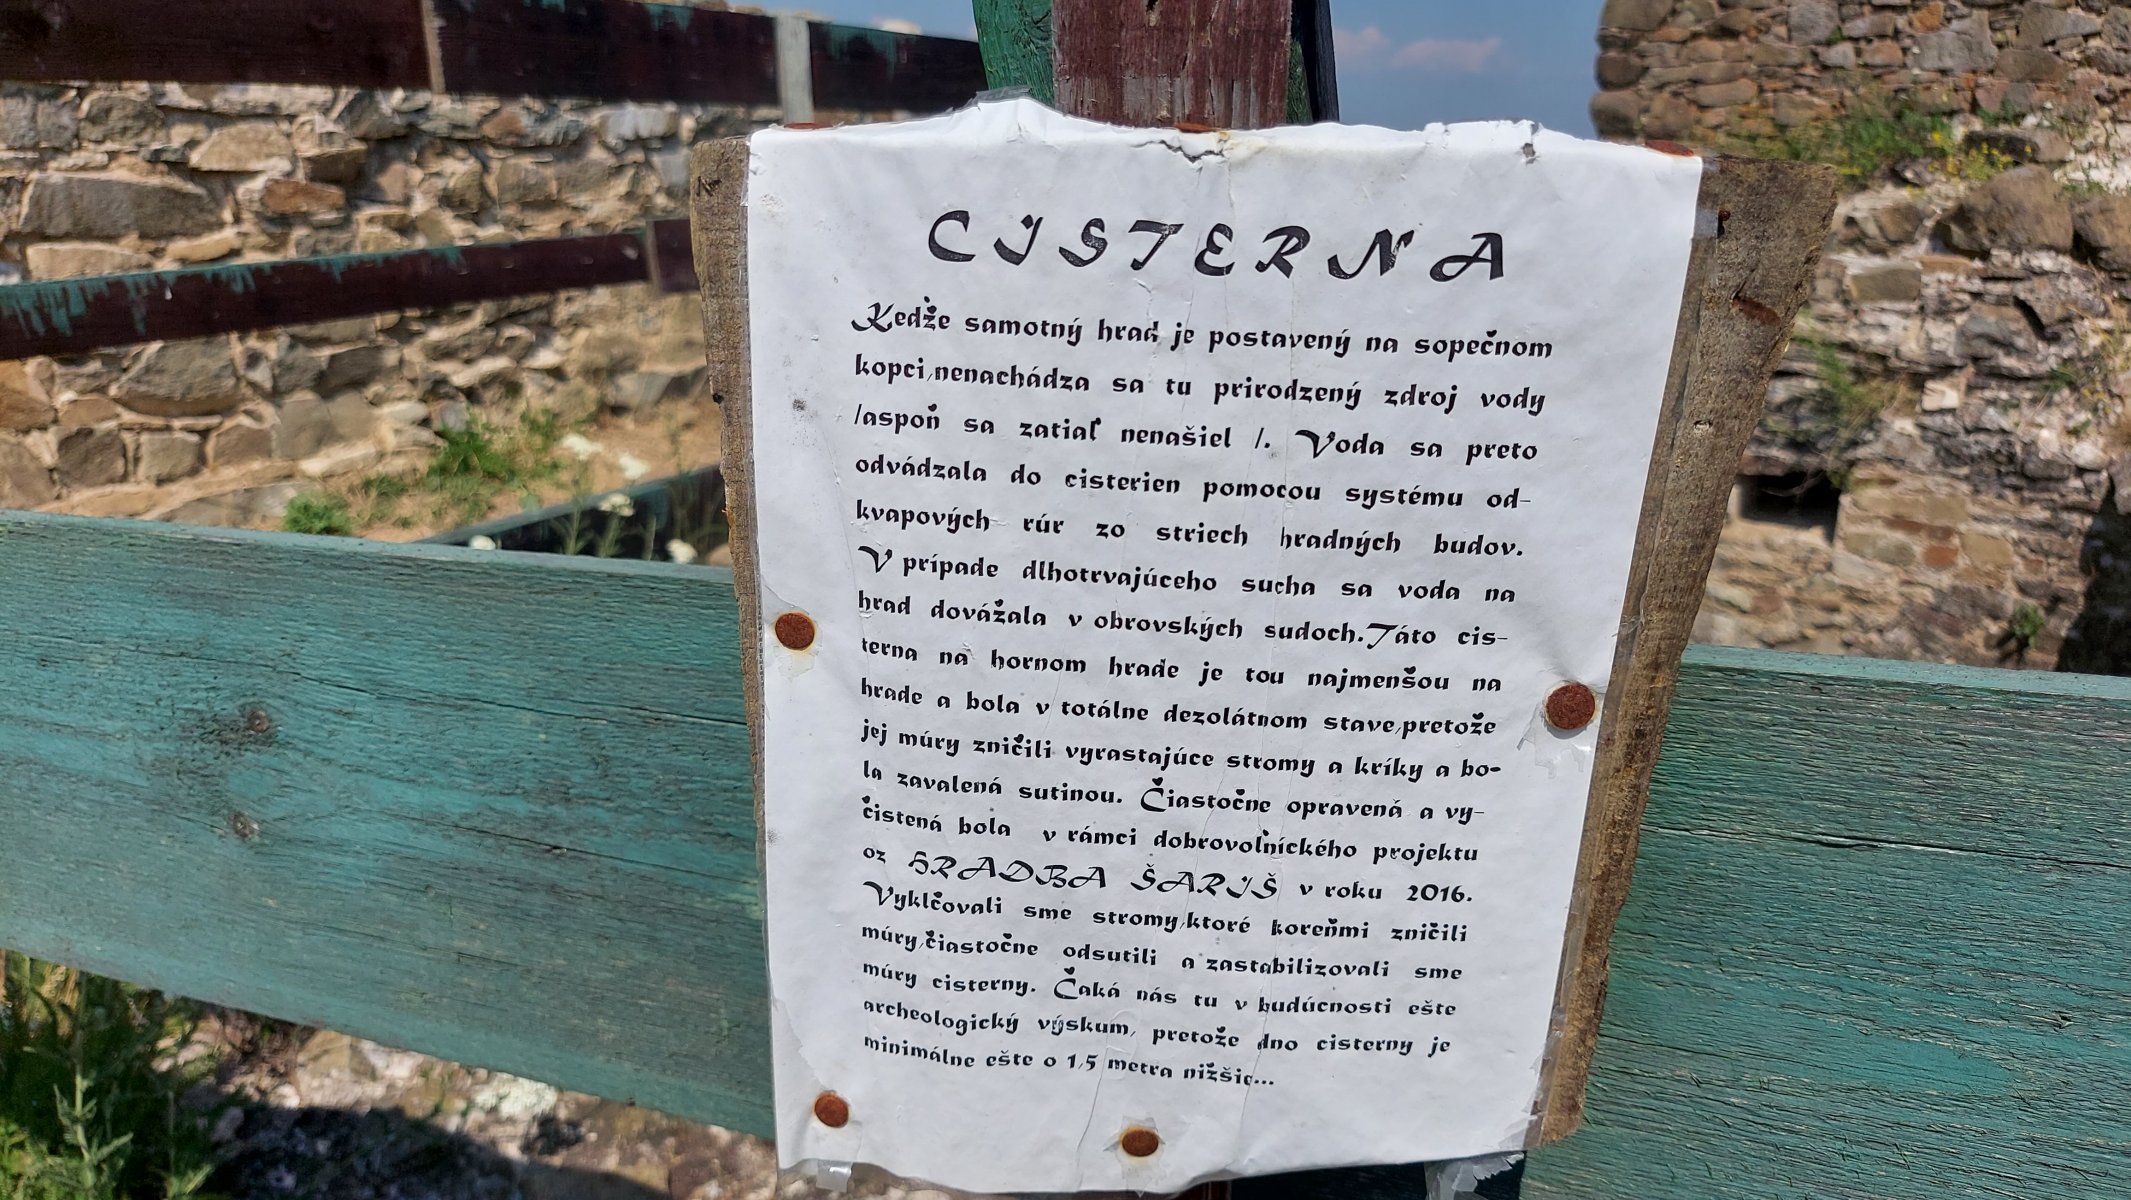 CISTERNA
Kedže samotný hrad je postavený na sopečnom
kopci,nenachádza sa tu prirodzený zdroj vody
/aspoň sa zatiaľ nenašiel /. Voda sa preto
odvádzala do cisterien pomocou systému od-
kvapových rúr zo striech hradných budov.
V prípade dlhotrvajúceho sucha sa voda na
hrad dovážala v obrovských sudoch.Táto cis-
terna na hornom hrade je tou najmenšou na
hrade a bola v totálne dezolátnom stave,pretože
jej múry zničili vyrastajúce stromy a kríky a bo-
la zavalená sutinou. Čiastočne opravená a vy-
čistená bola v rámci dobrovoľníckého projektu
oz HRADBA ŠARIŠ v roku 2016.
Vyklčovali sme stromy,ktoré koreňmi zničili
múry,čiastočne odsutili a zastabilizovali sme
múry cisterny. Čaká nás tu v budúcnosti ešte
archeologický výskum, pretože dno cisterny je
minimálne ešte o 1,5 metra nižšie...